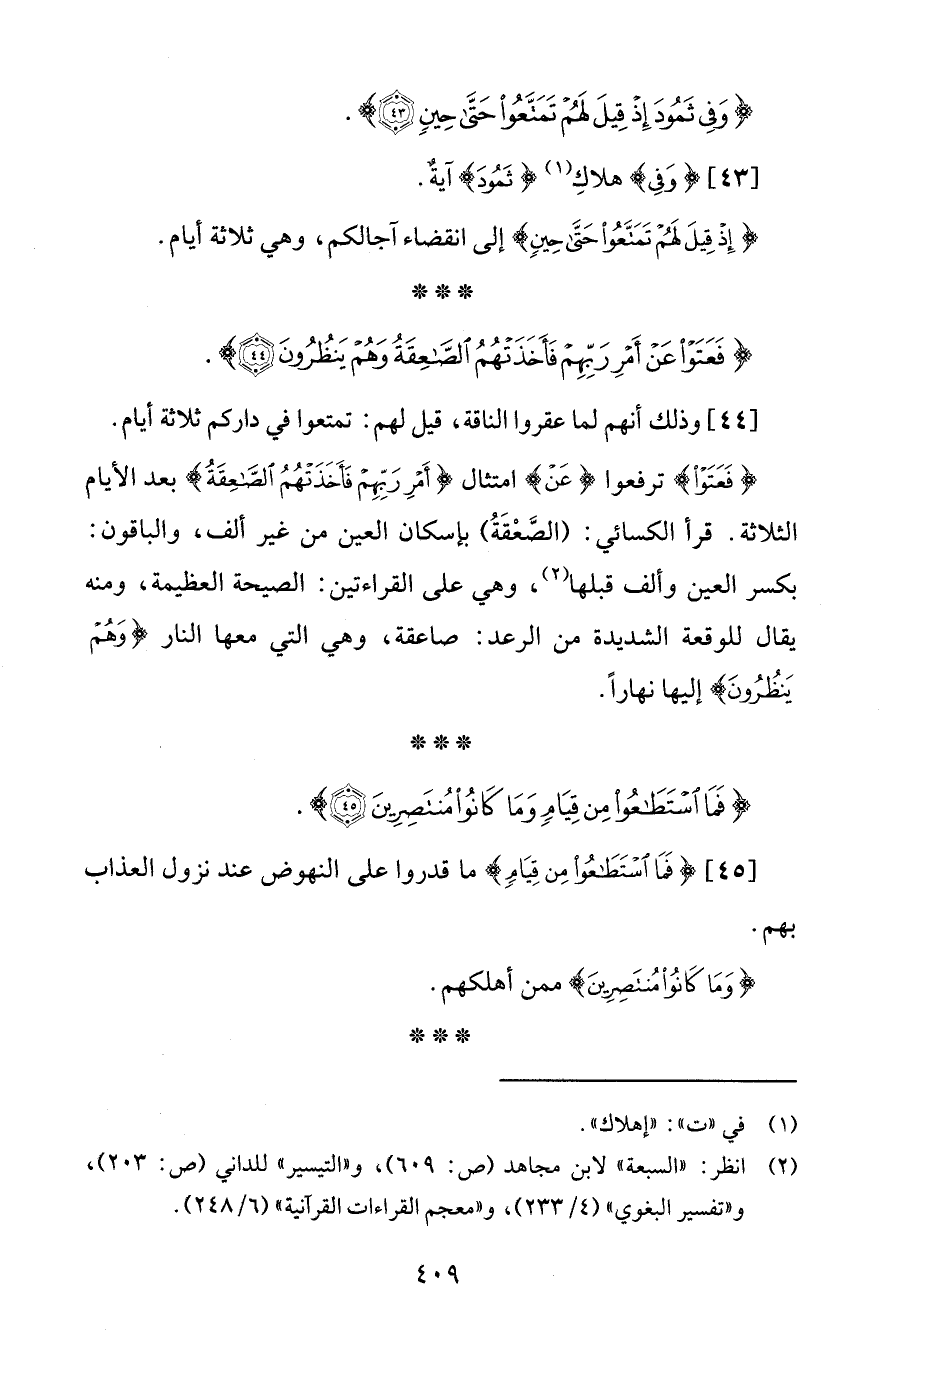 ﴿وَفِي ثَمُودَ إِذْ قِيلَ لَهُمْ تَمَتَّعُوا۟ حَتَّىٰ حِينٍ ٤٣﴾ .
[٤٣] ﴿وَفِي﴾ هلاكِ(١) ﴿ثَمُودَ﴾ آيةٌ.
﴿إِذْ قِيلَ لَهُمْ تَمَتَّعُوا۟ حَتَّىٰ حِينٍ﴾ إلى انقضاء آجالكم، وهي ثلاثة أيام.
***
﴿فَعَتَوْا۟ عَنْ أَمْرِ رَبِّهِمْ فَأَخَذَتْهُمُ ٱلصَّـٰعِقَةُ وَهُمْ يَنظُرُونَ ٤٤﴾ .
[٤٤] وذلك أنهم لما عقروا الناقة، قيل لهم: تمتعوا في داركم ثلاثة أيام.
﴿فَعَتَوْا۟﴾ ترفعوا ﴿عَنْ﴾ امتثال ﴿أَمْرِ رَبِّهِمْ فَأَخَذَتْهُمُ ٱلصَّـٰعِقَةُ﴾ بعد الأيام
الثلاثة. قرأ الكسائي: (الصَّعْقَةُ) بإسكان العين من غير ألف، والباقون:
بكسر العين وألف قبلها(٢)، وهي على القراءتين: الصيحة العظيمة، ومنه
يقال للوقعة الشديدة من الرعد: صاعقة، وهي التي معها النار ﴿وَهُمْ
يَنظُرُونَ﴾ إليها نهاراً.
***
﴿فَمَا ٱسْتَطَـٰعُوا۟ مِن قِيَامٍ وَمَا كَانُوا۟ مُنتَصِرِينَ ٤٥﴾ .
[٤٥] ﴿فَمَا ٱسْتَطَـٰعُوا۟ مِن قِيَامٍ﴾ ما قدروا على النهوض عند نزول العذاب
بهم.
﴿وَمَا كَانُوا۟ مُنتَصِرِينَ﴾ ممن أهلكهم.
***
(١) في «ت»: «إهلاك».
(٢) انظر: «السبعة» لابن مجاهد (ص: ٦٠٩)، و«التيسير» للداني (ص: ٢٠٣)،
و«تفسير البغوي» (٤/ ٢٣٣)، و«معجم القراءات القرآنية» (٦/ ٢٤٨).
٤٠٩